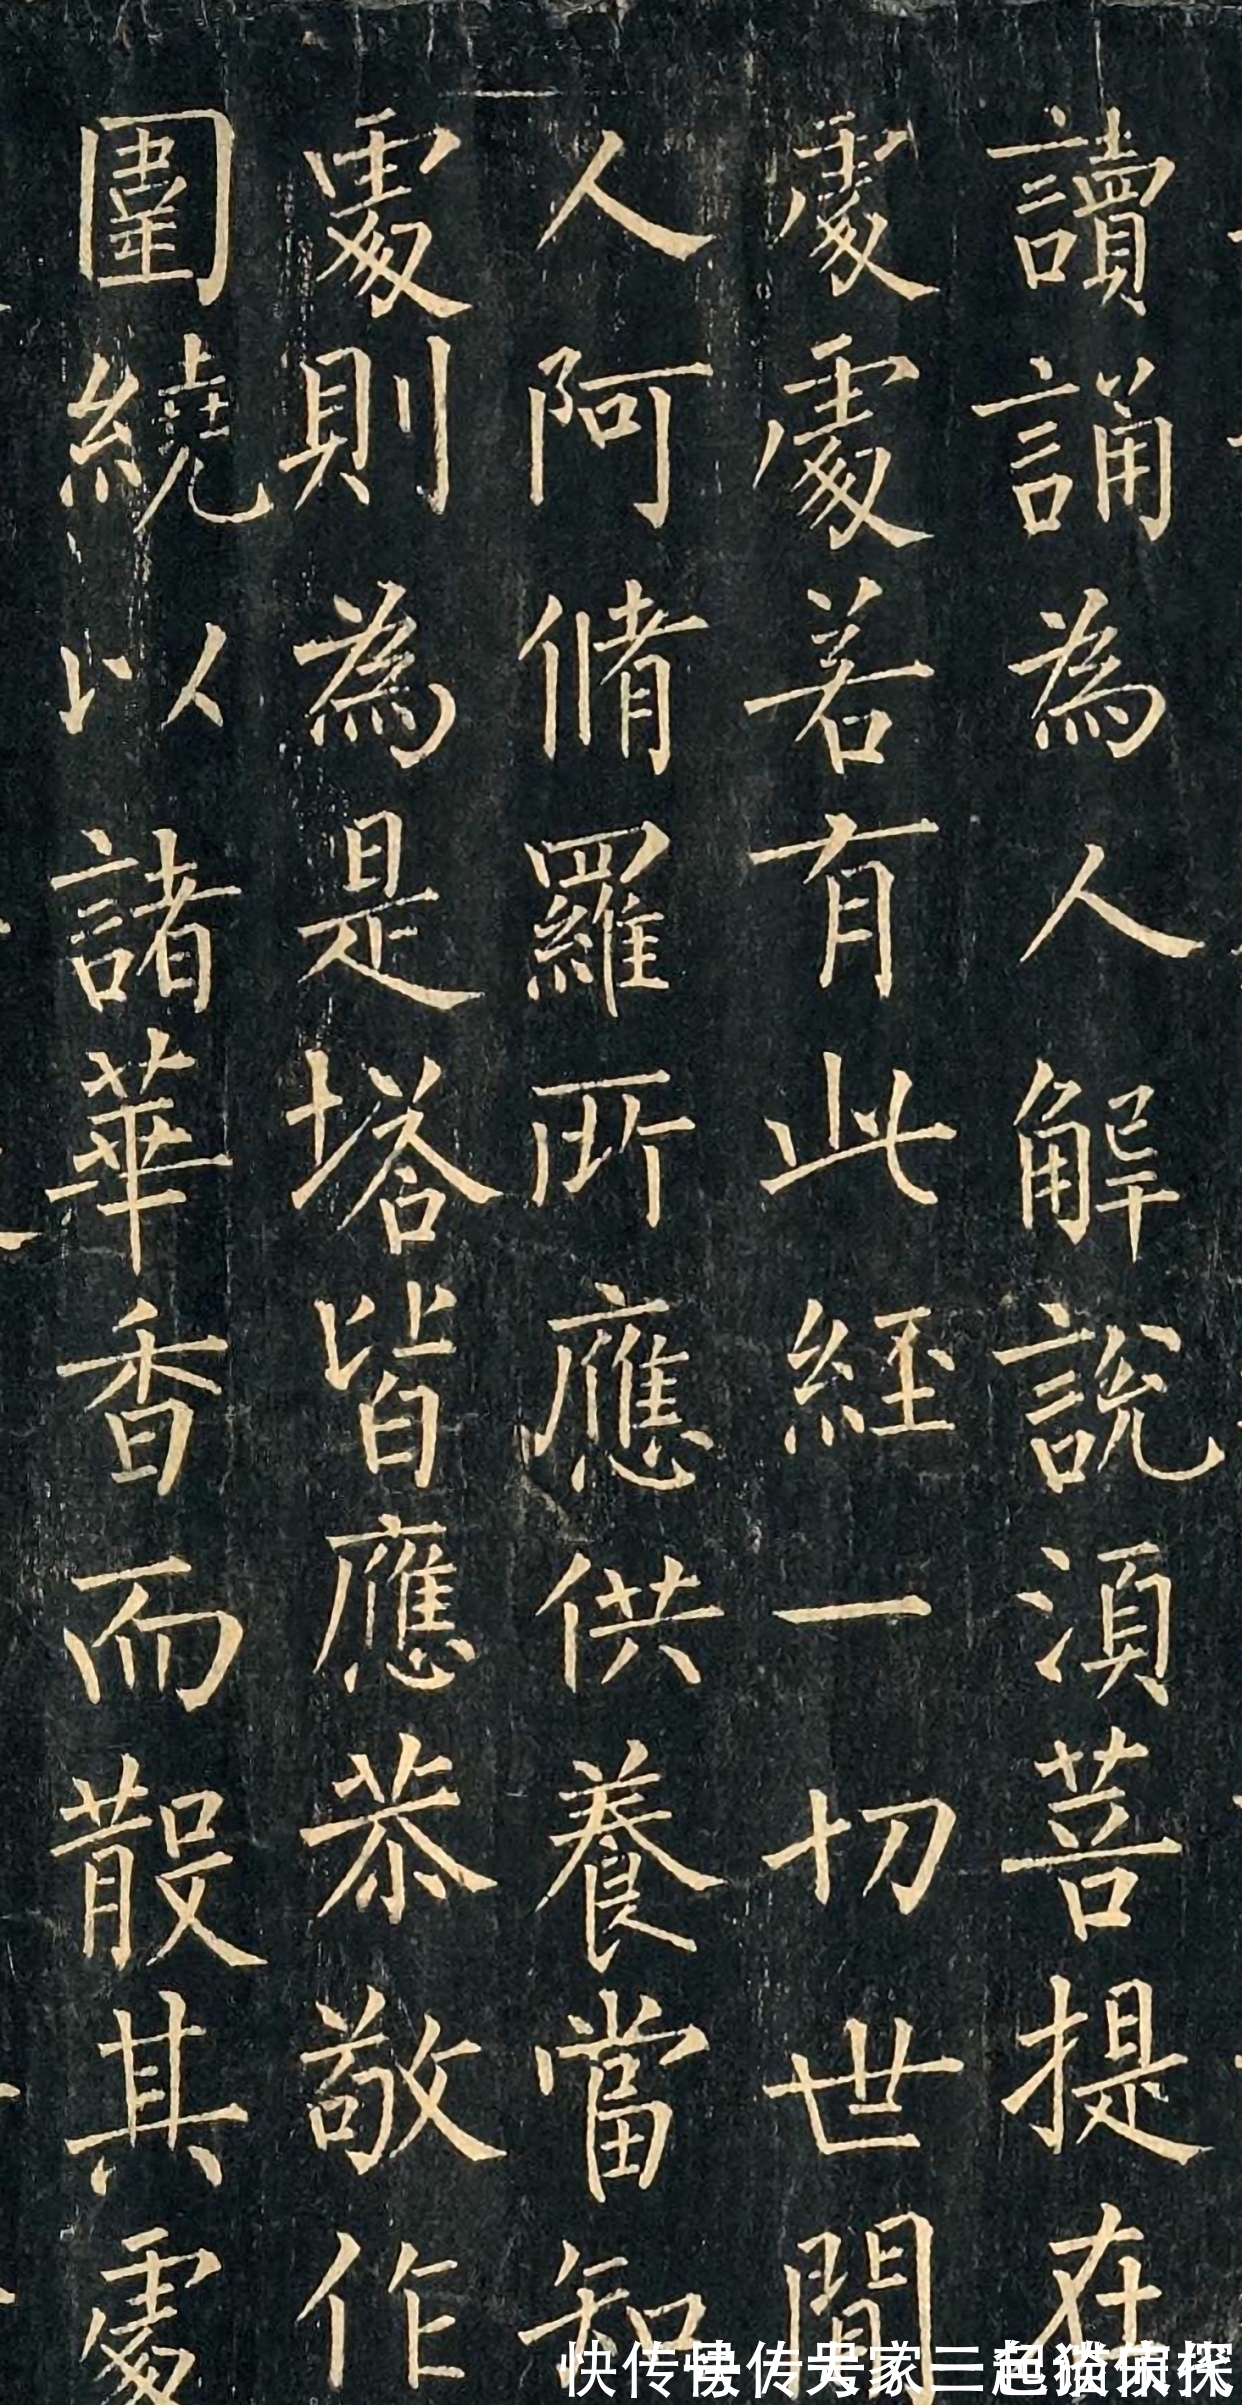 讀誦為人解說須菩提在
處處若有此經一切世間
人阿脩羅所應供養當知
處則為是塔皆應恭敬作
圍繞以諸華香而散其處